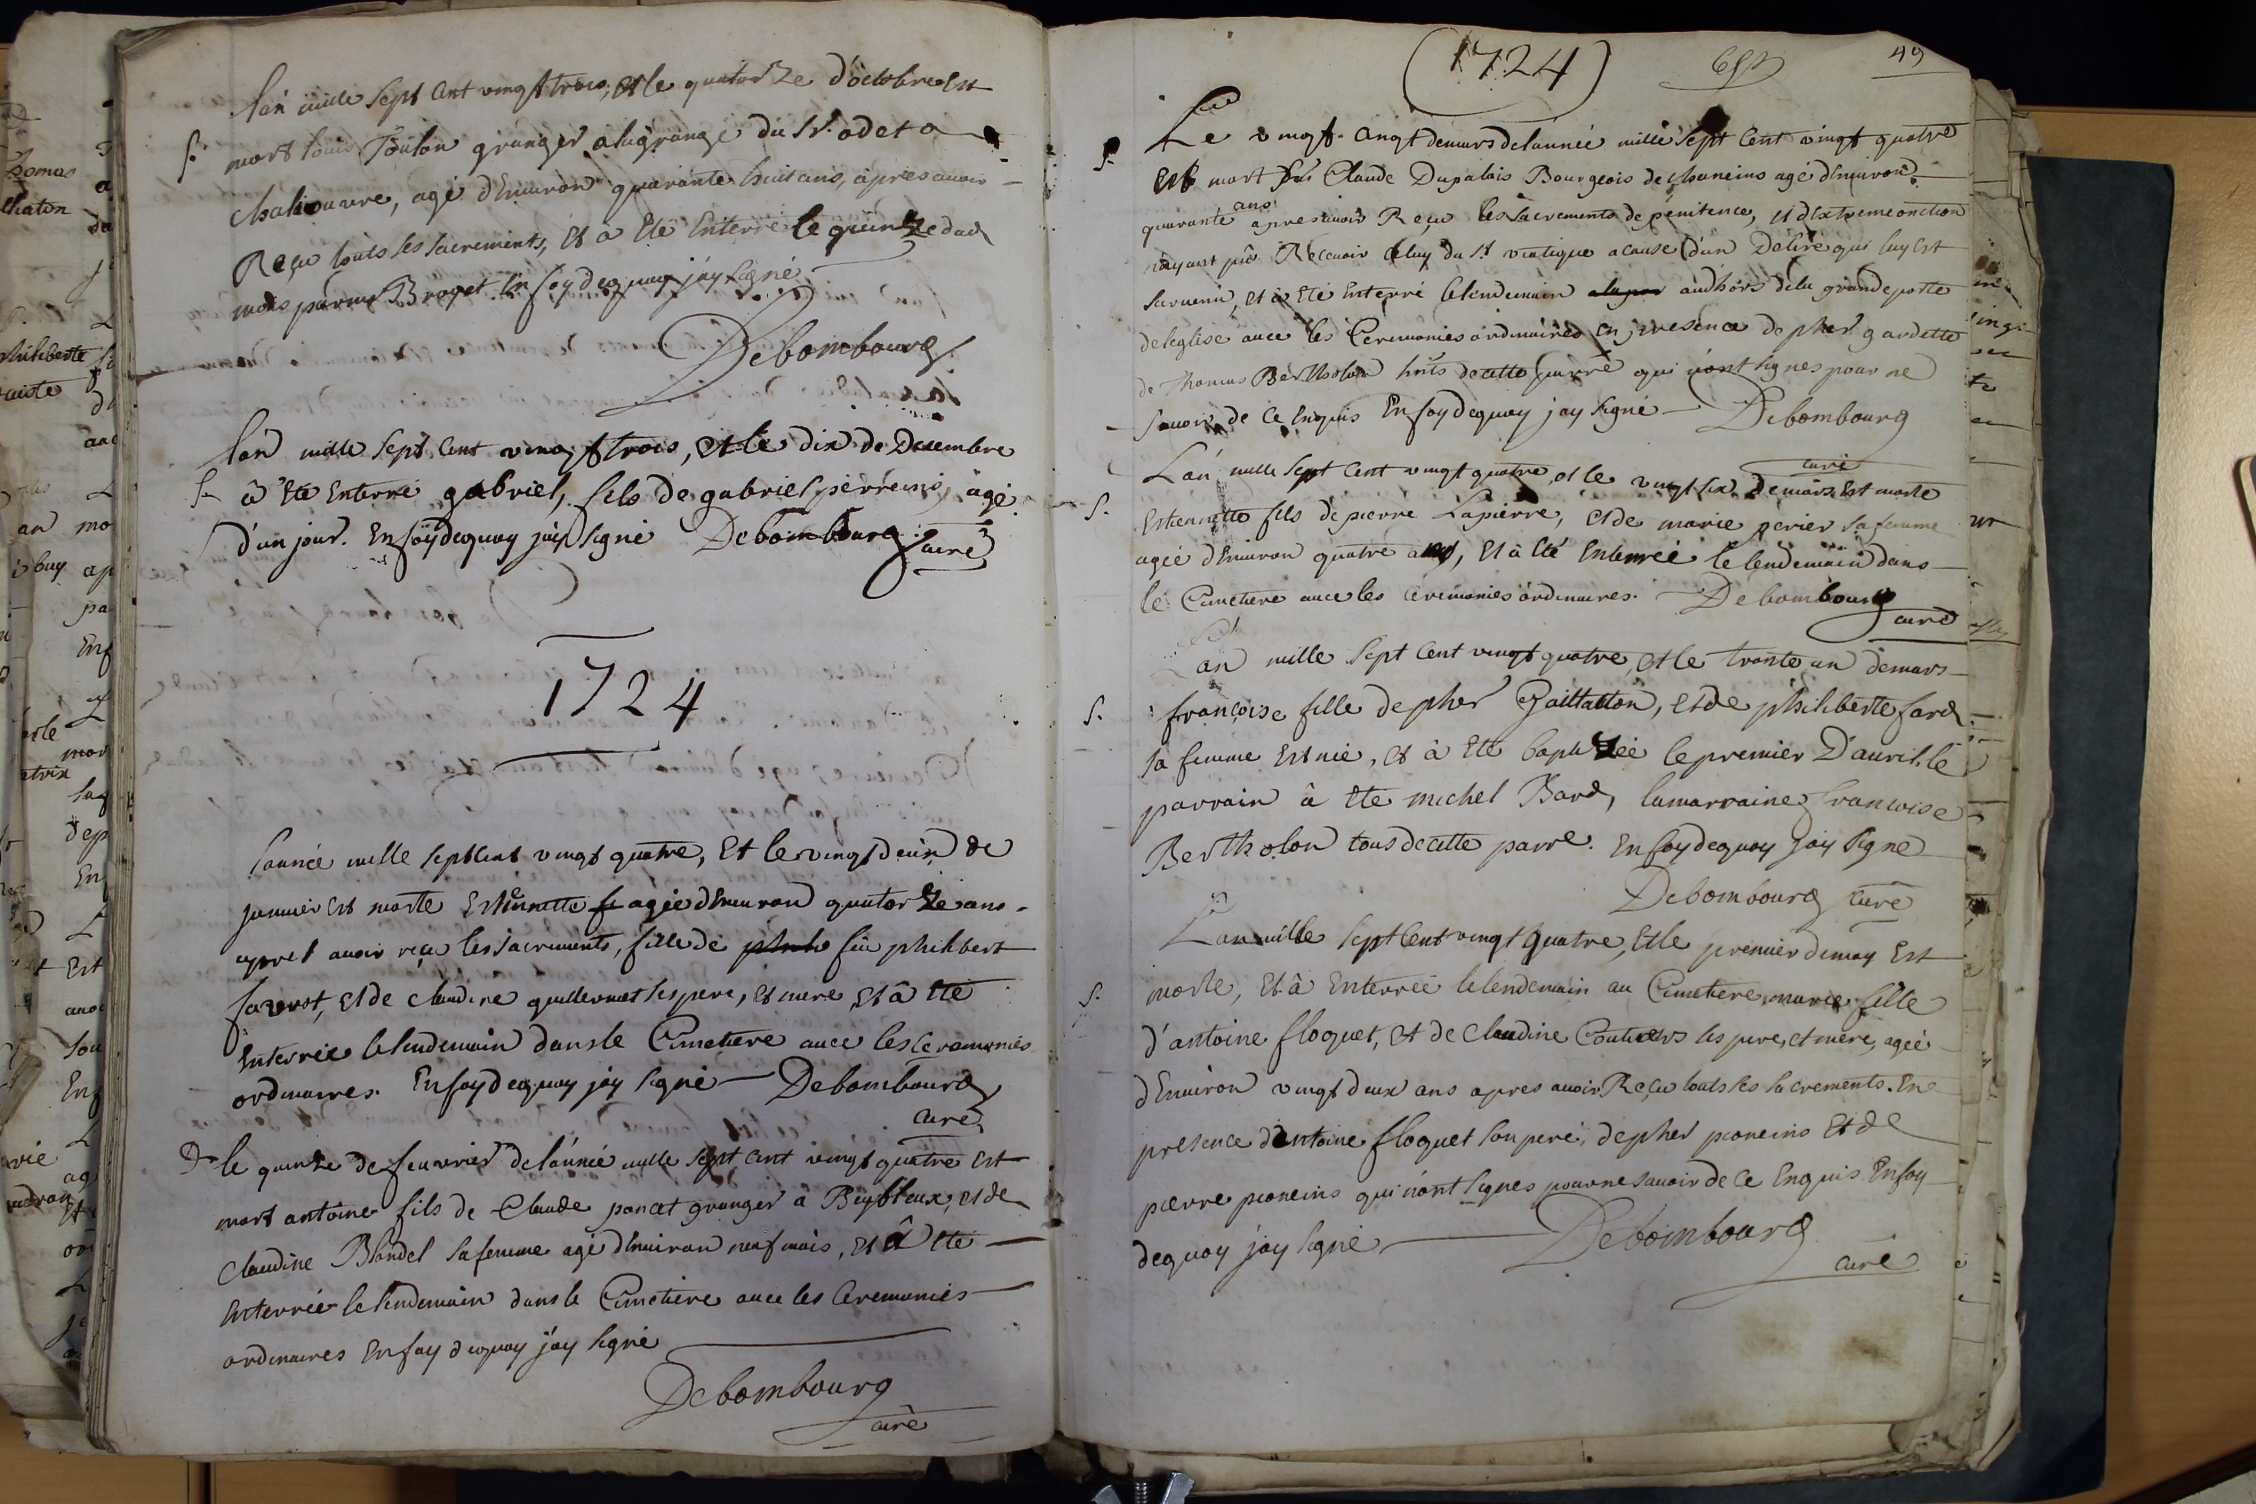 Lan mille sept cent vingt trois, et le quatorze d'octobre est
S. mort louis Toulon granger a la grange du Sr. odet a
chaliouvre, agé d'Environ quarante huit ans, apres avoir
Reçu touts les sacrements, et a Eté Enterré le quinze dud
mois par mr Broyet En foy dequoy j'ay signé
Debombourg
Lan mille sept cent vingt trois, et le dix de Decembre
S. â Eté Enterré gabriel, fils de gabriel perreins, agé
d'un jour. En foy dequoy j'ay signé Debombourg curé
1724
Lannée mille sept cent vingt quatre, Et le vingt deux de
janvier est morte Estiennette agée d'Environ quatorze ans
apres avoir reçu les sacrements, fille de feu philibert
favrot, et de claudine guillermet ses pere, et mere et â Eté
Enterrée le lendemain dans le Cimetiere avec les ceremonies
ordinaires. En foy dequoy j'ay signé Debombourg
curé
le quinze de feuvrier de l'année mille sept cent vingt quatre est
mort antoine fils de Claude poncet granger à Beybleux, et de
claudine Blondel sa femme agé d'Environ neuf mois, et â Eté
Enterrée le lendemain dans le Cimetiere avec les Ceremonies
ordinaires En foy dequoy j'ay signé
Debombourg
curé
(1724)
49
Le vingt cinq de mars de l'année mille sept cent vingt quatre
S. Est mort Claude Dupalais Bourgeois de chaneins agé d'Environ
quarante ans apres avoir Reçu les sacrements de penitence, et d'Extreme onction
nayant pû Recevoir celuy du St viatique a cause d'un Delire qui luy est
survenu, et â Eté Enterré le lendemain au dhors de la grande porte
de leglise avec les Ceremonies ordinaires en presence de pher gardette
de Thomas Bertholon touts de cette parré qui n'ont signes pour ne
savoir de Ce Enquis En foy dequoy j'ay signé Debombourg
curé
Lan mille sept cent vingt quatre et le vingt six de mars Est morte
S. Estiennette fils de pierre Lapierre, et de marie perier sa femme
agée d'Environ quatre ans, et â Eté Enterrée le lendemain dans
le Cimetiere avec les ceremonies ordinaires. Debombourg
curé
Lan mille sept cent vingt quatre, et le trante un de mars
S. françoise fille de pher Gaillatton, et de philiberte fard
sa femme Est née, et â Eté baptizée le premier D'avril, le
parrain â Eté michel Bard, la marraine francoise
Bertholon tous de cette parré. En foy dequoy j'ay signé
Debombourg curé
Lan mille sept cent vingt quatre, et le premier de may Est
S. morte, et â Enterrée le lendemain au Cimetiere marie fille
d'antoine floquet, et de claudine ses pere, et mere, agée
d'Environ vingt deux ans apres avoir Reçu touts les sacrements. En
presence d'Antoine floquet son pere, de pher pioneins Et de
pierre pioneins qui n'ont signes pour ne savoir de ce Enquis. En foy
dequoy j'ay signé Debombourg
curé